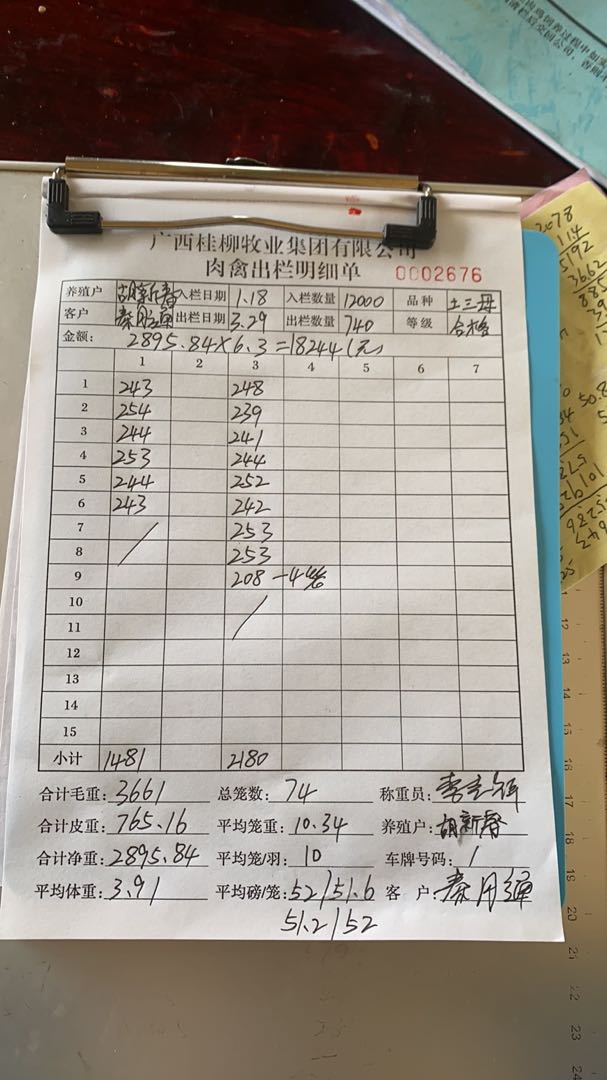 广西桂柳牧业集团有限公司
肉禽出栏明细单 0002676
养殖户 胡新春 入栏日期 1.18 入栏数量 12000 品种 土三母
客户 秦用通 出栏日期 3.29 出栏数量 740 等级 合格
金额: 2895.84×6.3=18244(元)
1 2 3 4 5 6 7
1 243 248
2 254 239
3 244 241
4 253 244
5 244 252
6 243 242
7 253
8 253
9 208-4笼
10
11
12
13
14
15
小计 1481 2180
合计毛重:3661 总笼数:74 称重员:
合计皮重:765.16 平均笼重:10.34 养殖户:胡新春
合计净重:2895.84 平均笼/羽:10 车牌号码:/
平均体重:3.91 平均磅/笼:52/51.6 客 户:秦用通
51.2/52